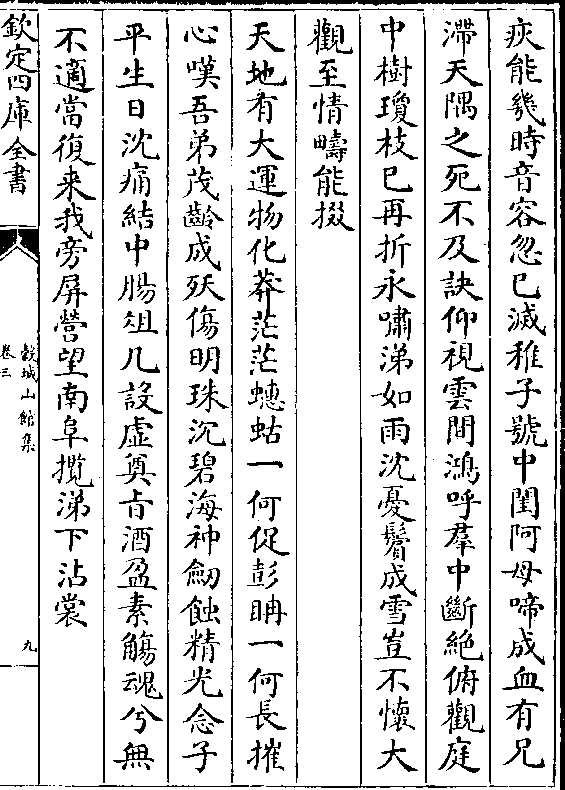 疢能幾時音容忽已滅稚子號中閨阿母啼成血有兄
滯天隅之死不及訣仰視雲間鴻呼羣中斷絶俯觀庭
中樹瓊枝已再折永嘯涕如雨沈憂鬢成雪豈不懷大
觀至情疇能掇
天地有大運物化莽茫茫蟪蛄一何促彭𣆀一何長摧
心嘆吾弟茂齡成殀傷明珠沉碧海神劒蝕精光念子
平生日沈痛結中腸俎几設虛奠旨酒盈素觴魂兮無
不適當復来我旁屏營望南阜攬涕下沾裳
欽定四庫全書
穀城山館集
卷三
九